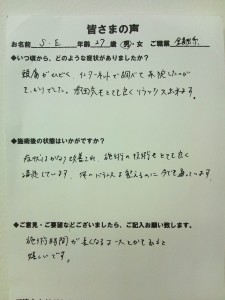 皆さまの声
お名前 S.E 年齢 27 歳 男・女 ご職業
◆いつ頃から、どのような症状がありましたか？
頭痛がひどく、インターネットで調べて来院したのが
きっかけでした。雰囲気もとても良くリラックス出来ます。
◆施術後の状態はいかがですか？
症状はかなり改善され、施術の技術もとても良く
満足しています。体のバランスを整えるのに今でも通っています。
◆ご意見・ご要望などございましたら、ご記入お願い致します。
施術時間が長くなるコースとかもあると
嬉しいです。